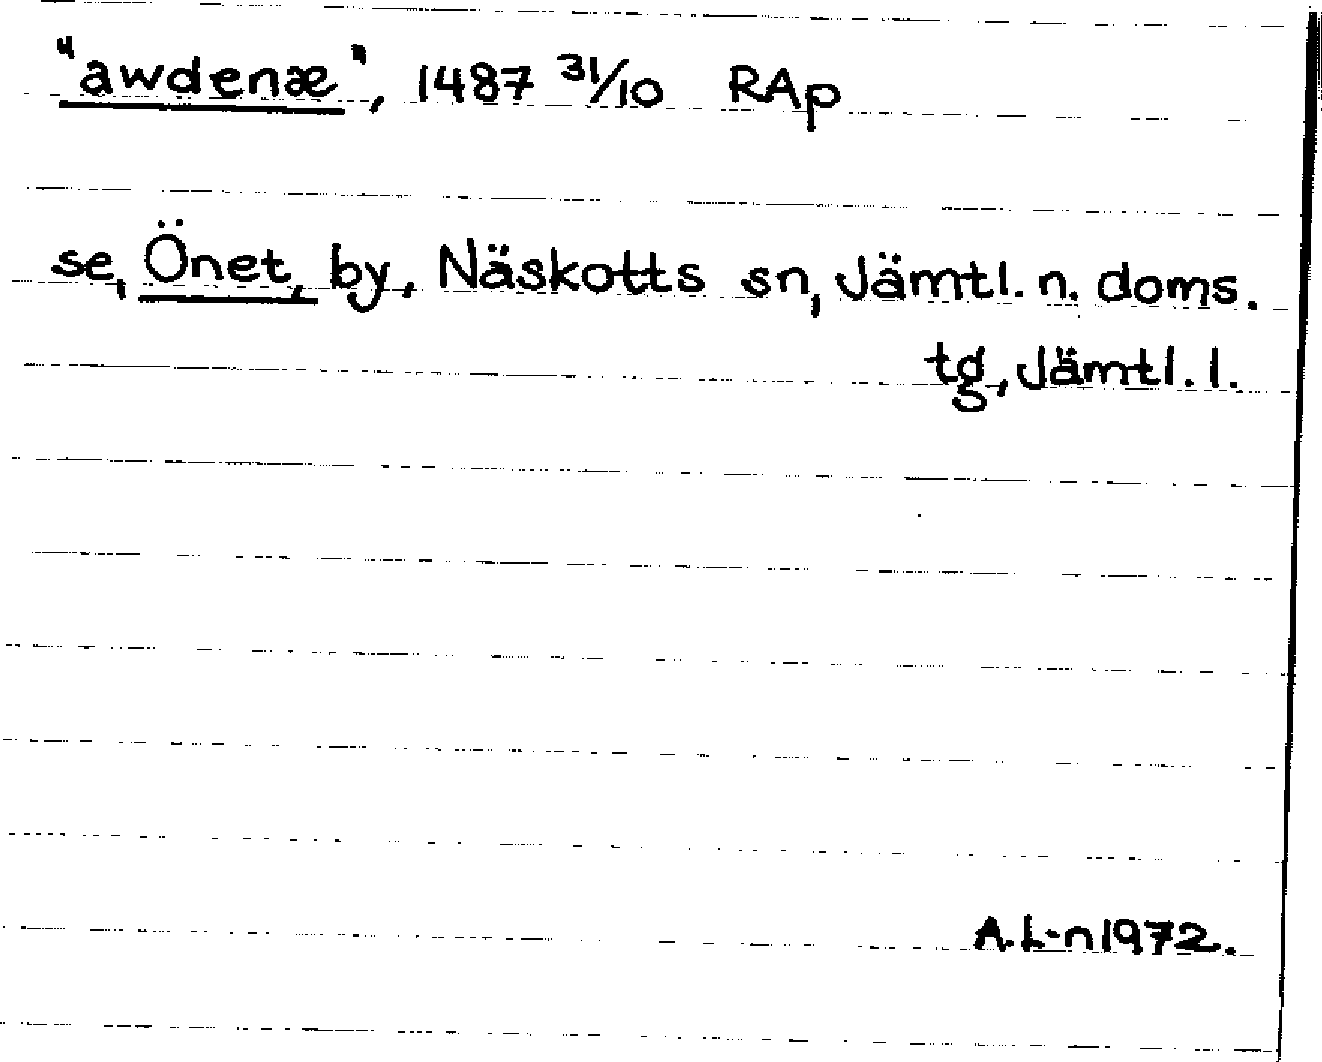 "awdenæ", 1487 31/10 RAp
se, Önet, by, Näskotts sn, Jämtl. n. doms.
tg, Jämtl. l.
A.L-n 1972.